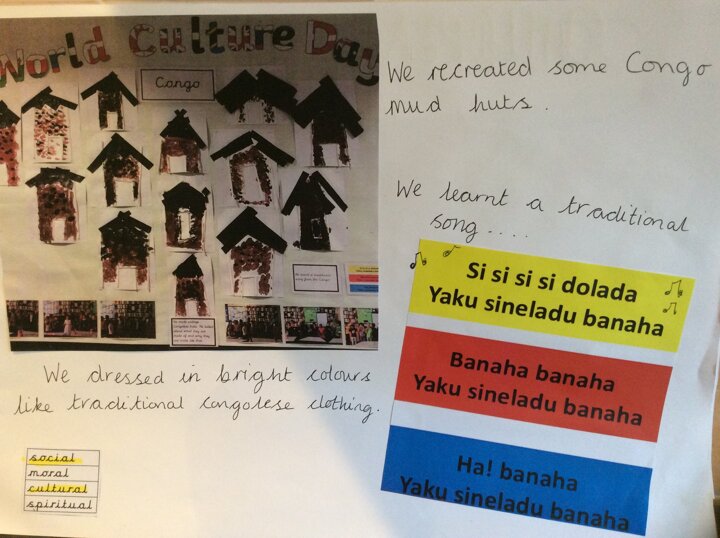 World Culture Day
Congo
We recreated some Congo
mud huts.
We learnt a traditional
song....
Si si si si dolada
Yaku sineladu banaha
Banaha banaha
Yaku sineladu banaha
Ha! banaha
Yaku sineladu banaha
We dressed in bright colours
like traditional congolese clothing.
social
moral
cultural
spiritual